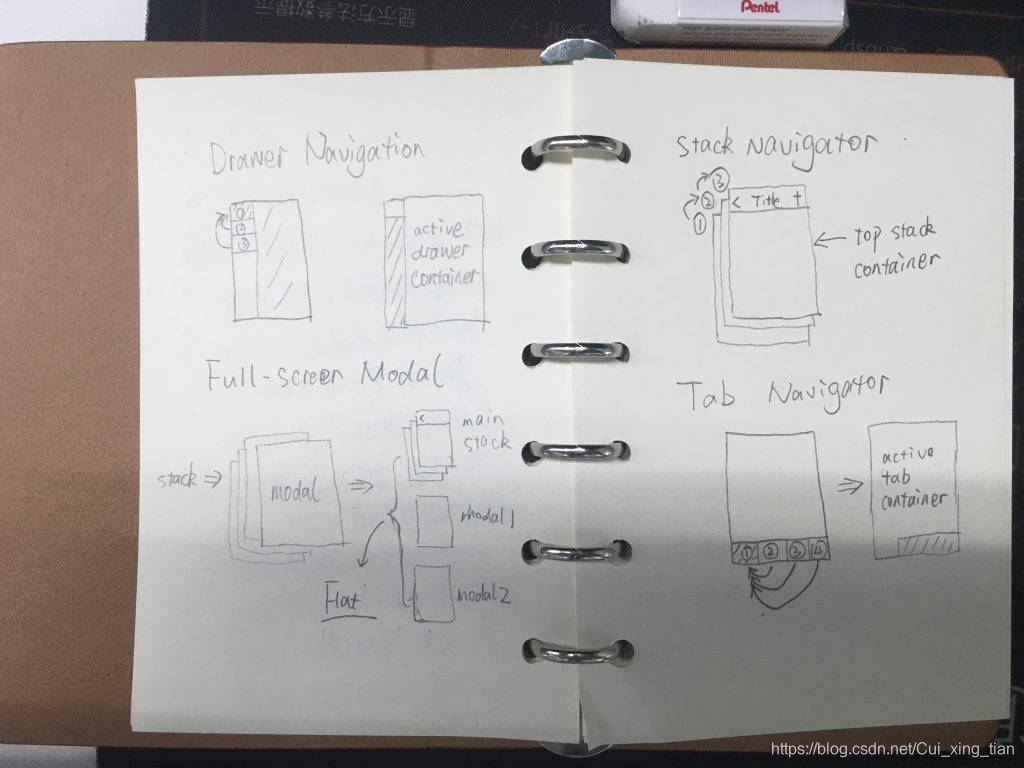 Pentel
High quality plastic eraser
显示方法参数提示
Drawer Navigation
①
②
③
active
drawer
container
Full-screen Modal
stack ⇒
modal
⇒
<
main
stack
modal1
modal2
Flat
Stack Navigator
③
②
①
< Title +
← top stack
container
Tab Navigator
① ② ③ ④
⇒
active
tab
container
https://blog.csdn.net/Cui_xing_tian